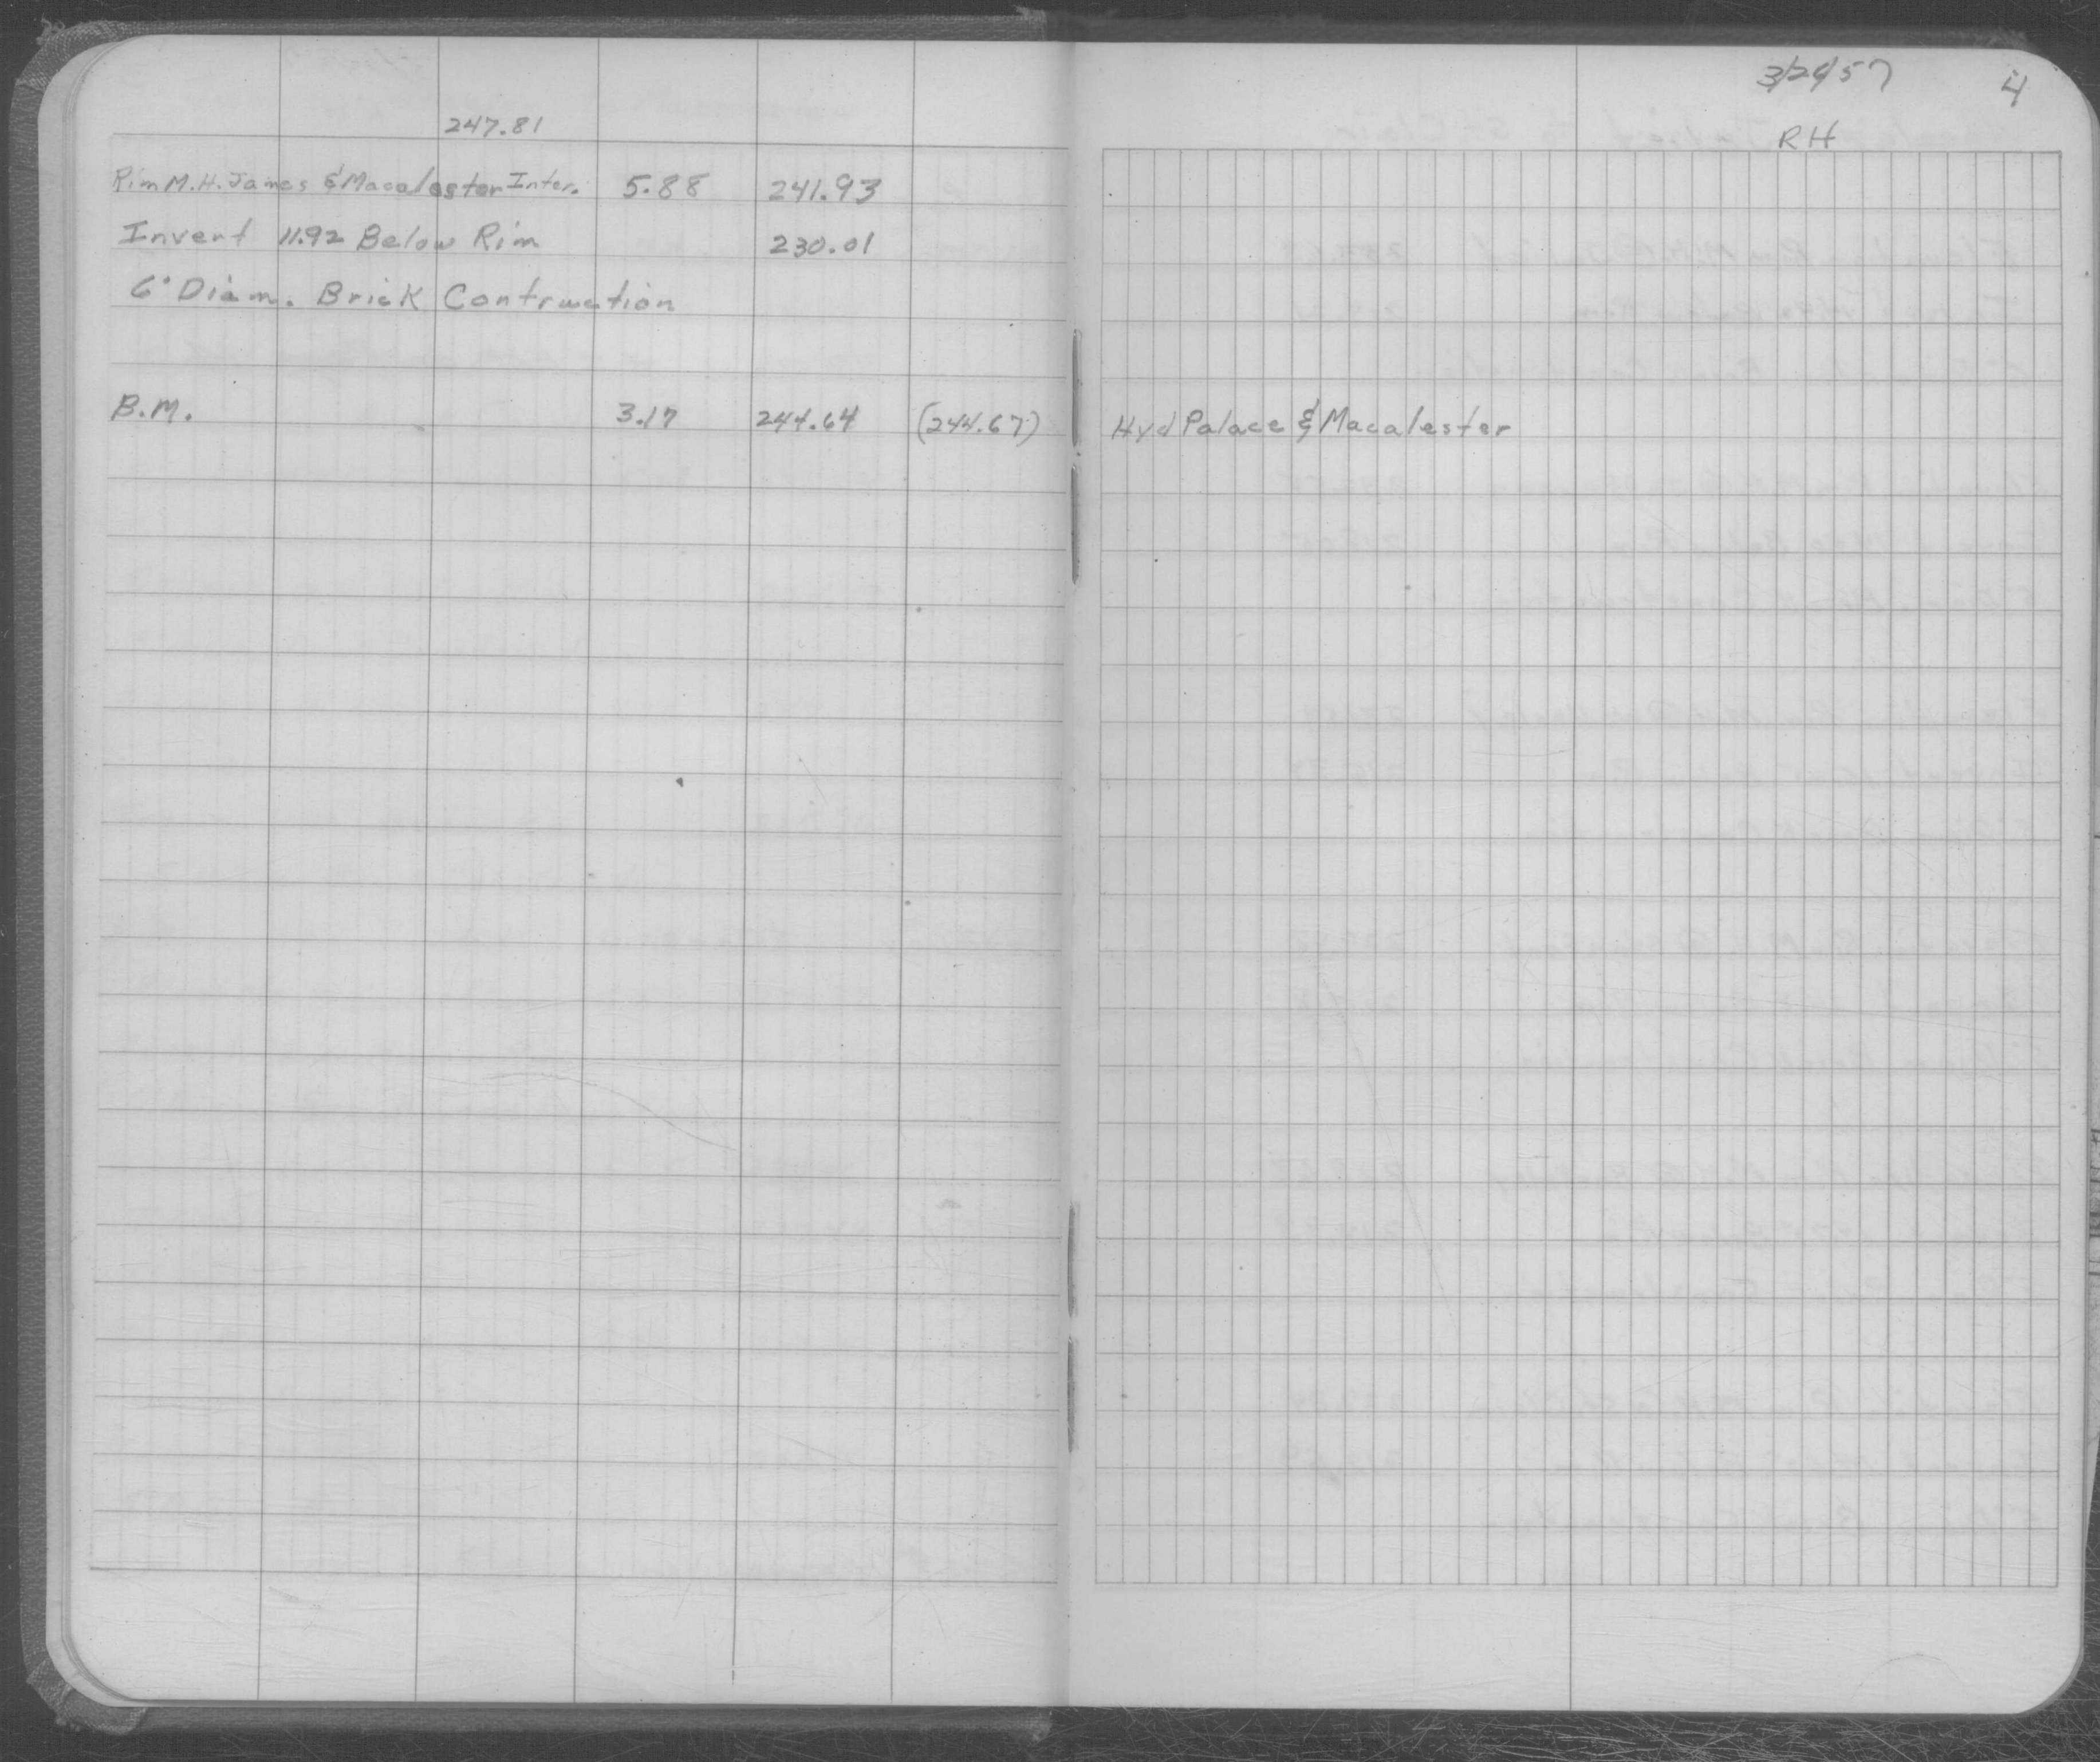 247.81
Rim M.H. James & Macalester Inter. 5.88 241.93
Invert 11.92 Below Rim 230.01
6' Diam. Brick Contruction
B.M. 3.17 244.64 (244.67)
4
RH
Hyd Palace & Macalester